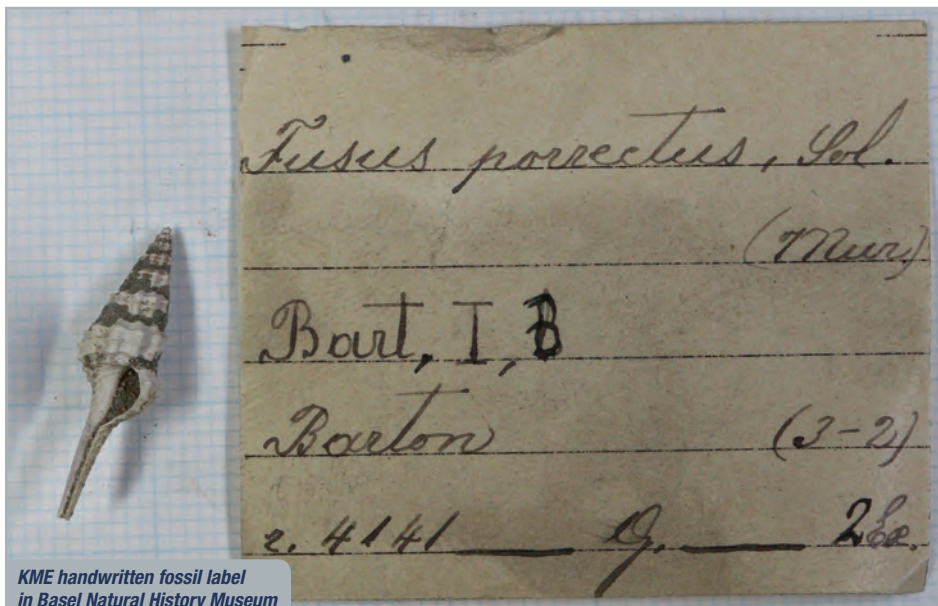 Fusus porrectus, Sol.
(Mur.)
Bart, I, B
Barton (3-2)
r. 4141 — G. — 2 Ex.
KME handwritten fossil label
in Basel Natural History Museum